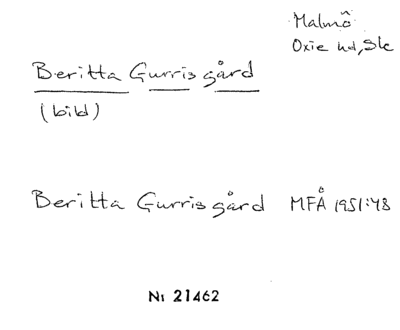 Malmö
Oxie hd, Sk
Beritta Gurris gård
(bild)
Beritta Gurris gård MFÅ 1951:48
Nr 21462